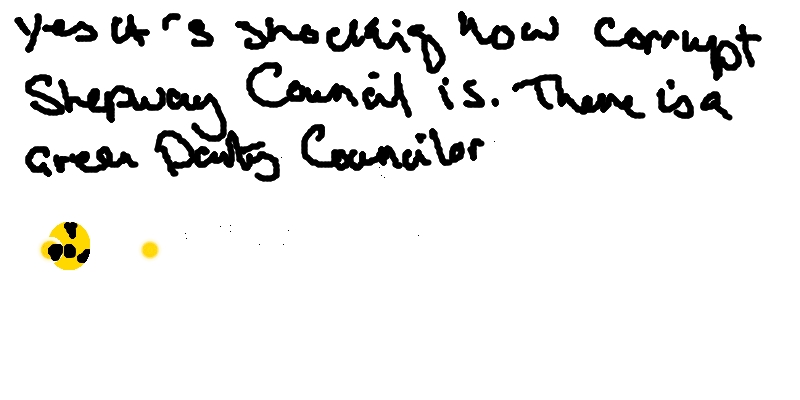 Yes it's shocking how corrupt
Shepway Council is. There is a
Green Party Councilor